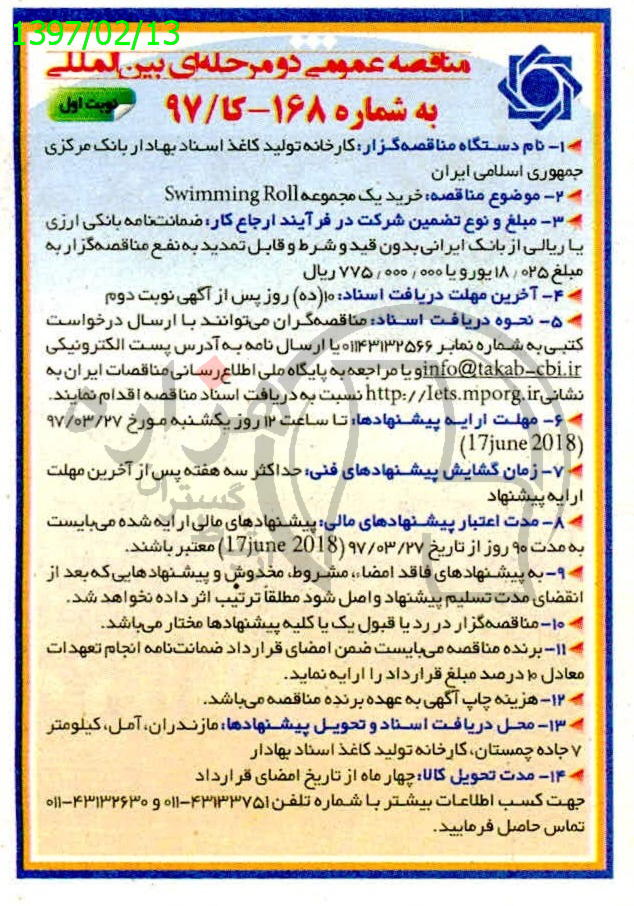 1397/02/13
مناقصه عمومی دو مرحله‌ای بین‌المللی
به شماره ۱۶۸-کا/۹۷
نوبت اول
۱- نام دستگاه مناقصه‌گزار: کارخانه تولید کاغذ اسناد بهادار بانک مرکزی
جمهوری اسلامی ایران
۲- موضوع مناقصه: خرید یک مجموعه Swimming Roll
۳- مبلغ و نوع تضمین شرکت در فرآیند ارجاع کار: ضمانت‌نامه بانکی ارزی
یا ریالی از بانک ایرانی بدون قید و شرط و قابل تمدید به نفع مناقصه‌گزار به
مبلغ ۱۸٫۰۲۵ یورو و یا ۷۷۵٫۰۰۰٫۰۰۰ ریال
۴- آخرین مهلت دریافت اسناد: ۱۰(ده) روز پس از آگهی نوبت دوم
۵- نحوه دریافت اسناد: مناقصه‌گران می‌توانند با ارسال درخواست
کتبی به شماره نمابر ۰۱۱۴۳۱۳۲۵۶۶ یا ارسال نامه به آدرس پست الکترونیکی
info@takab-cbi.ir و یا مراجعه به پایگاه ملی اطلاع‌رسانی مناقصات ایران به
نشانی http://Iets.mporg.ir نسبت به دریافت اسناد مناقصه اقدام نمایند.
۶- مهلت ارایه پیشنهادها: تا ساعت ۱۲ روز یکشنبه مورخ ۹۷/۰۳/۲۷
(17june 2018)
۷- زمان گشایش پیشنهادهای فنی: حداکثر سه هفته پس از آخرین مهلت
ارایه پیشنهاد
۸- مدت اعتبار پیشنهادهای مالی: پیشنهادهای مالی ارایه شده می‌بایست
به مدت ۹۰ روز از تاریخ ۹۷/۰۳/۲۷ (17june 2018) معتبر باشند.
۹- به پیشنهادهای فاقد امضاء، مشروط، مخدوش و پیشنهادهایی که بعد از
انقضای مدت تسلیم پیشنهاد واصل شود مطلقا ترتیب اثر داده نخواهد شد.
۱۰- مناقصه‌گزار در رد یا قبول یک یا کلیه پیشنهادها مختار می‌باشد.
۱۱- برنده مناقصه می‌بایست ضمن امضای قرارداد ضمانت‌نامه انجام تعهدات
معادل ۱۰ درصد مبلغ قرارداد را ارایه نماید.
۱۲- هزینه چاپ آگهی به عهده برنده مناقصه می‌باشد.
۱۳- محل دریافت اسناد و تحویل پیشنهادها: مازندران، آمل، کیلومتر
۷ جاده چمستان، کارخانه تولید کاغذ اسناد بهادار
۱۴- مدت تحویل کالا: چهار ماه از تاریخ امضای قرارداد
جهت کسب اطلاعات بیشتر با شماره تلفن ۴۳۱۳۳۷۵۱-۰۱۱ و ۴۳۱۳۲۶۳۰-۰۱۱
تماس حاصل فرمایید.